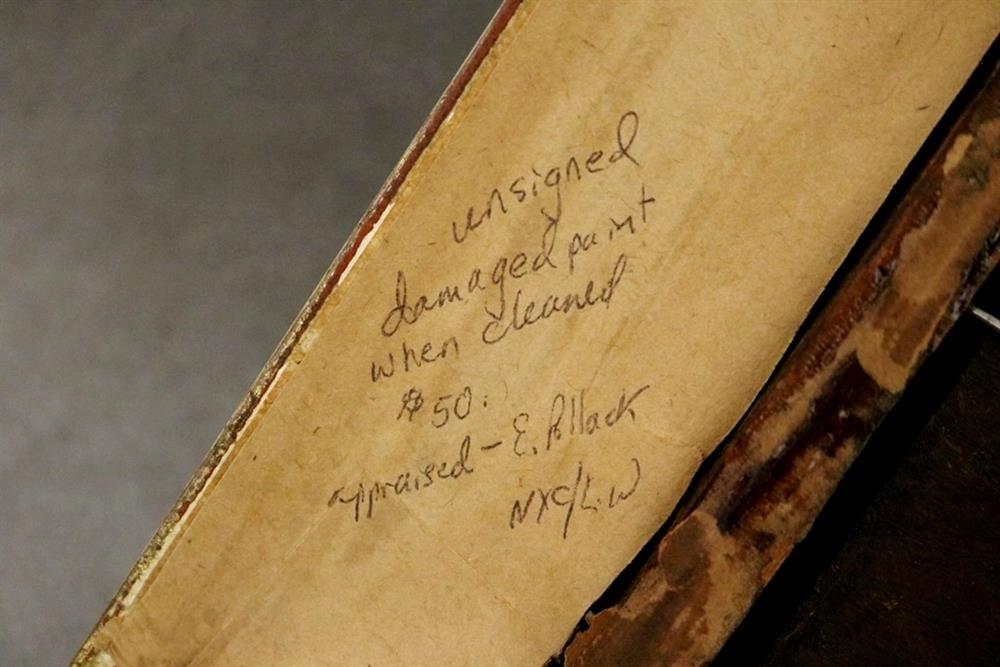 unsigned
damaged paint
when cleaned
$50.
appraised - E. Pollack
NYC/L.W